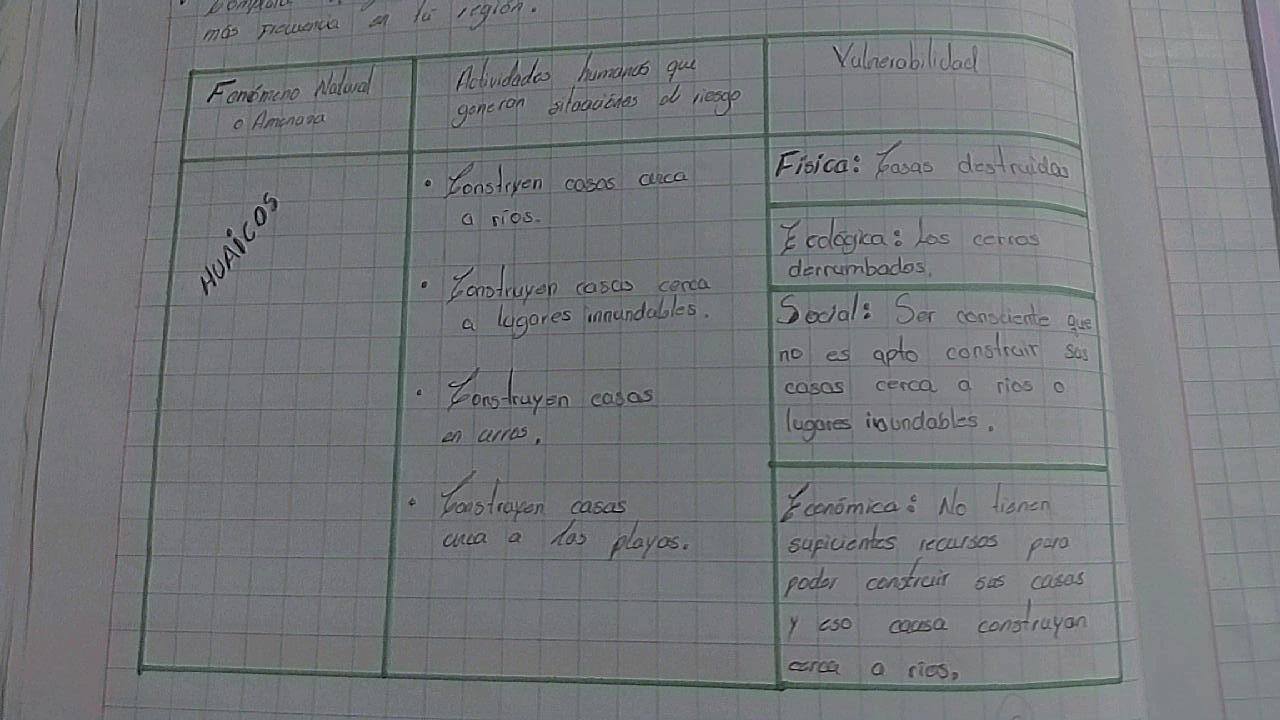 más frecuencia en tu región.
Fenómeno Natural
o Amenaza
Actividades humanas que
generan situaciones de riesgo
Vulnerabilidad
HUAICOS
• Construyen casas cerca
a ríos.
• Construyen casas cerca
a lugares innundables.
• Construyen casas
en cerros.
• Construyen casas
cerca a las playas.
Física: Casas destruidas
Ecológica: Los cerros
derrumbados.
Social: Ser consciente que
no es apto construir sus
casas cerca a rios o
lugares inundables.
Económica: No tienen
suficientes recursos para
poder construir sus casas
y eso causa construyan
cerca a rios.